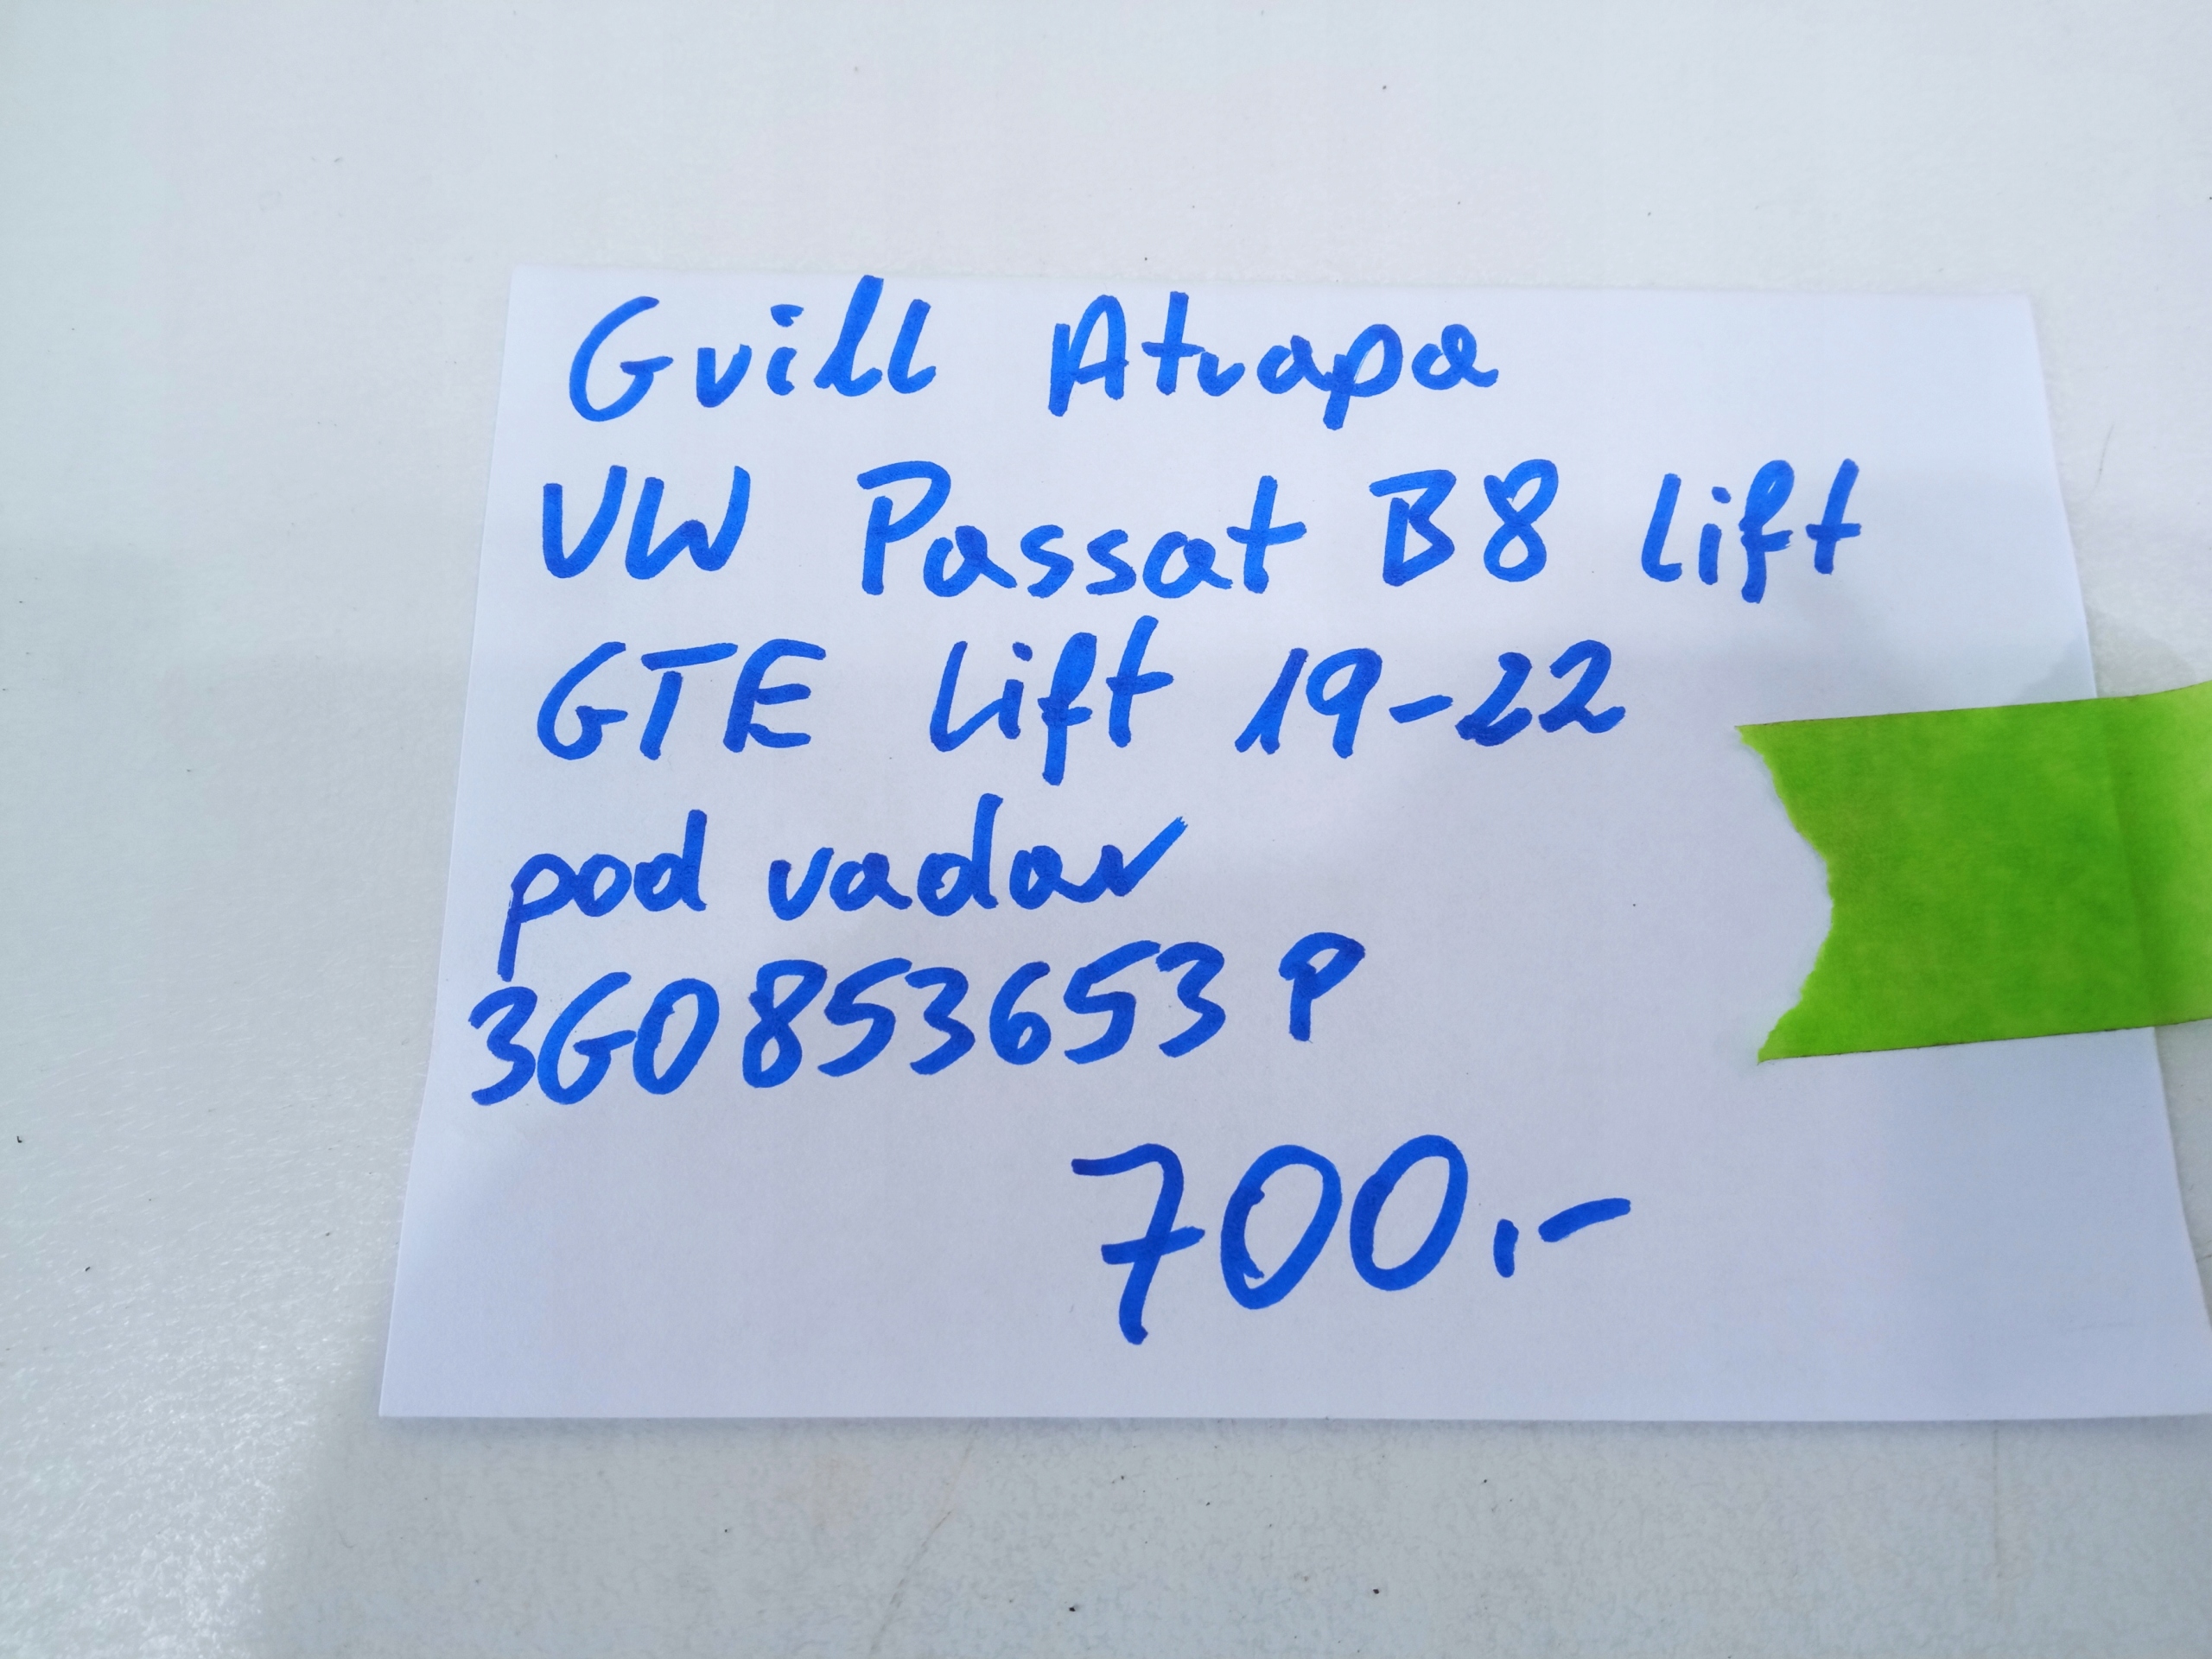 Grill Atrapa
VW Passat B8 Lift
GTE Lift 19-22
pod radar
3G0853653 P
700.-